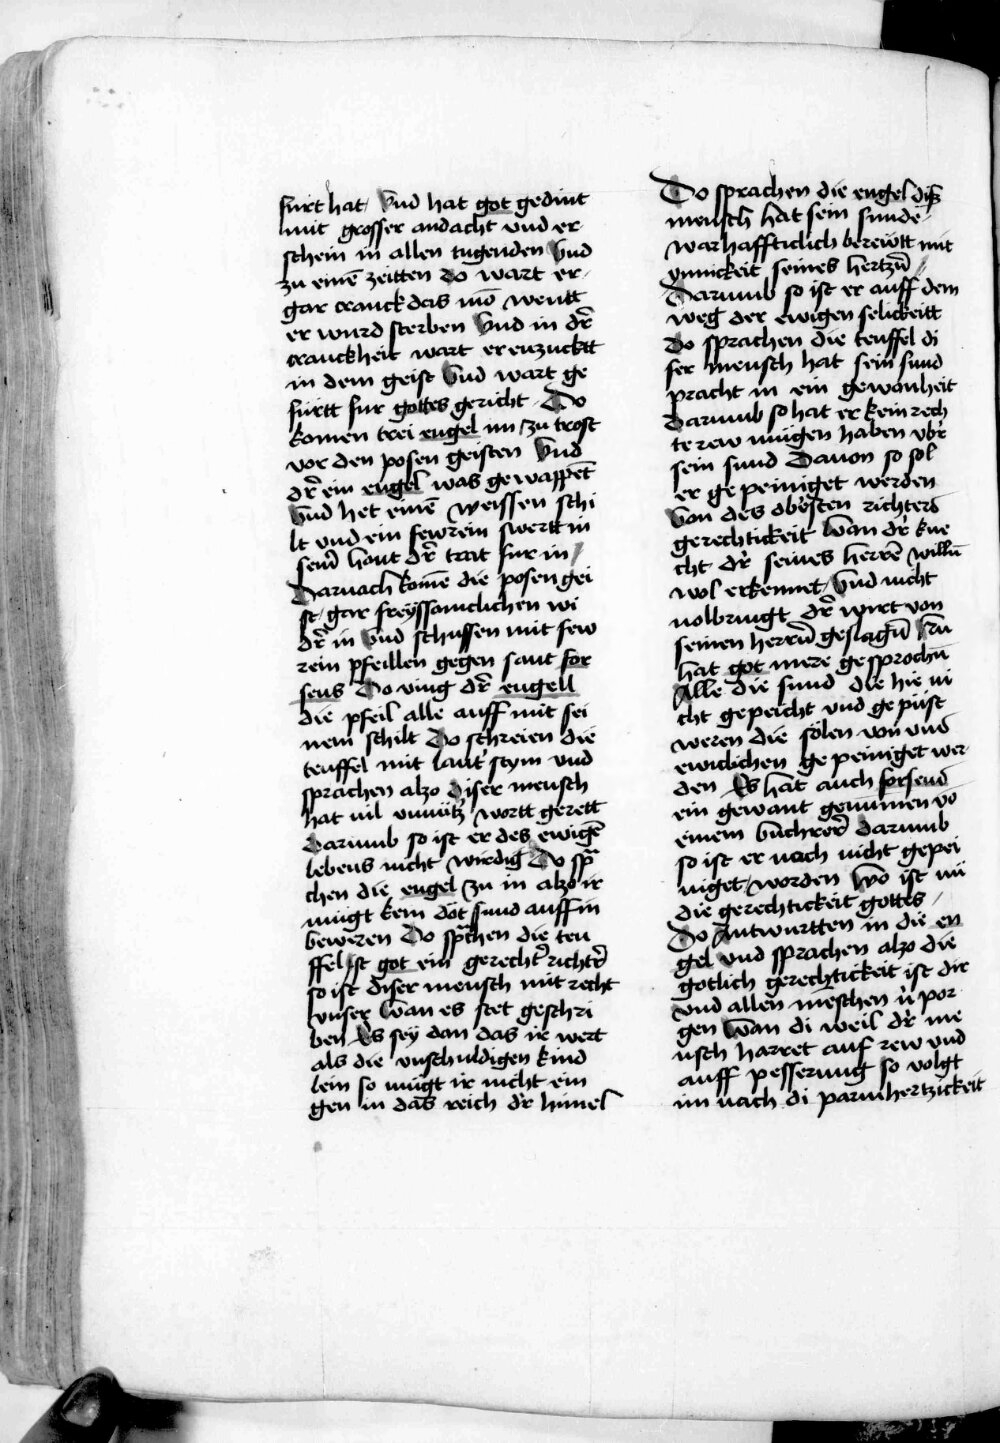 furt hat / Vnd hat got gedint
mit grosser andacht vnd er
schein in allen tugenden Vnd
zu einē zeitten do wart er
gar cranck das mō wentt
er wurd sterben Vnd in dr̄
cranckheit wart er enzucktt
in dem geist Vnd wart ge
furtt fur gottes gericht / Do
komen trei engel im / zu trost
vor den posen geisten Vnd
dr̄ ein engel was gewappēt
Vnd het einē weissen schi
lt vnd ein fewrein swertt in
seinr̄ hant dr̄ trat fur in /
Darnach komē die posen gei
st / gar freyssamclichen wi
dr̄ in Vnd schussen mit few
rein pfeillen gegen sant for
seus Do ving dr̄ engell
die pfeil alle auff mit sei
nem schilt Do schreien die
teuffel mit laut̄ stym vnd
sprachen alzo diser mensch
hat vil vnnütz wortt gerett
Darumb so ist er des ewigē
lebens nicht wirdig Do spͣ
chen die engel zu in alzo ir
mügt kein döt sund auff in
beweren Do spͣchen die teu
ffel ist got ein gerecht̄ richtr̄
so ist diser mensch mit recht
vnser Wan es stet geschri
ben Es sey dan das ir wert
als die vnschuldigen kind
lein so mügt ir nicht ein
gen in das reich dr̄ himel
Do sprachen die engel diß
mensch hat sein sunde /
warhaffticlich bereẅtt mit
ynnickeit seines hertzn̄ /
Darumb so ist er auff dem
weg der ewigen selickeitt
Do sprachen die teuffel di
ser mensch hat sein sund
pracht in ein gewonheit
Darumb so hat er kein rech
te rew mügen haben vbr̄
sein sund Dauon so sol
er gepeiniget werden
Von des obr̄sten richters
gerechtickeit Wan dr̄ kne
cht dr̄ seines herrē willn̄
wol erkennet / Vnd nicht
volbringt dr̄ wirt von
seinen herrn̄ geslagn̄
hat got mere gesprochn̄
Alle die sund die hie ni
cht gepeicht vnd gepüst
weren die sölen von vnd
ewiclichen gepeiniget wer
den Es hat auch forseus
ein gewant genummen vō
einem buchrer̄ darumb
so ist er nach nicht gepei
niget / worden Wo ist nü
die gerechtickeit gottes /
Do Antwurtten in die en
gel vnd sprachen alzo die
gotlich gerechtickeit ist dir
vnd allen meschen v̈ por
gen Wan di weil dr̄ me
nsch harret auf rew vnd
auff pesserung so volgt
im nach di parmhertzickeit